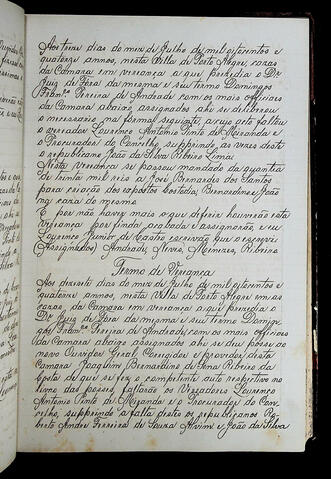 Aos treze dias do mez de Julho de mil oitocentos e
quatorze annos, nesta Villa de Porto Alegre, cazas
da Camara em vereança a que prezedio o Dr
Juiz de Fóra da mesma e seu Termo Domingos
Franco Pereira de Andrade com os mais officiaes
da Camara abaixo assignados ahi se deliberou
o necessario na forma seguinte, a cujo acto faltou
o vereador Lourenço Antonio Pinto de Miranda e
o Procurador do Conselho, supprindo as vezes deste
o republicano João da Silva Ribeiro Lima.
Nesta Vreança se passou mandado da quantia
de trinta mil reis a José Bernardes dos Santos
para criação dos expostos Custodia, Bernardino e João
na caza do mesmo
E por não haver mais o que deferir houverão esta
vereança por finda acabada e assignarão, e eu
Lourenço Junior de Castro escrivão que o escrevi
(Assignados) Andrade, Neves, Menezes, Ribeiro
Termo de Vereança
Aos dezasete dias do mez de Julho de mil oitocentos e
quatorze annos, nesta Villa de Porto Alegre em as
cazas da Camara em vereança a que prezedio o
Dr Juiz de Fóra da mesma e seu Termo Domin-
gos Franco Pereira de Andrade, com os mais officiaes
da Camara abaixo assignados ahi se deu posse ao
novo Ouvidor Geral, Corregidor e provedor desta
Camara Joaquim Bernardino de Sena Ribeiro da
Costa de que se fez o competente auto respectivo no
livro das posses, faltarão os Vereadores Lourenço
Antonio Pinto de Miranda e o Procurador do Con-
celho, supprindo a falta destes os republicanos Ro-
berto André Ferreira de Souza Alvim e João da Silva